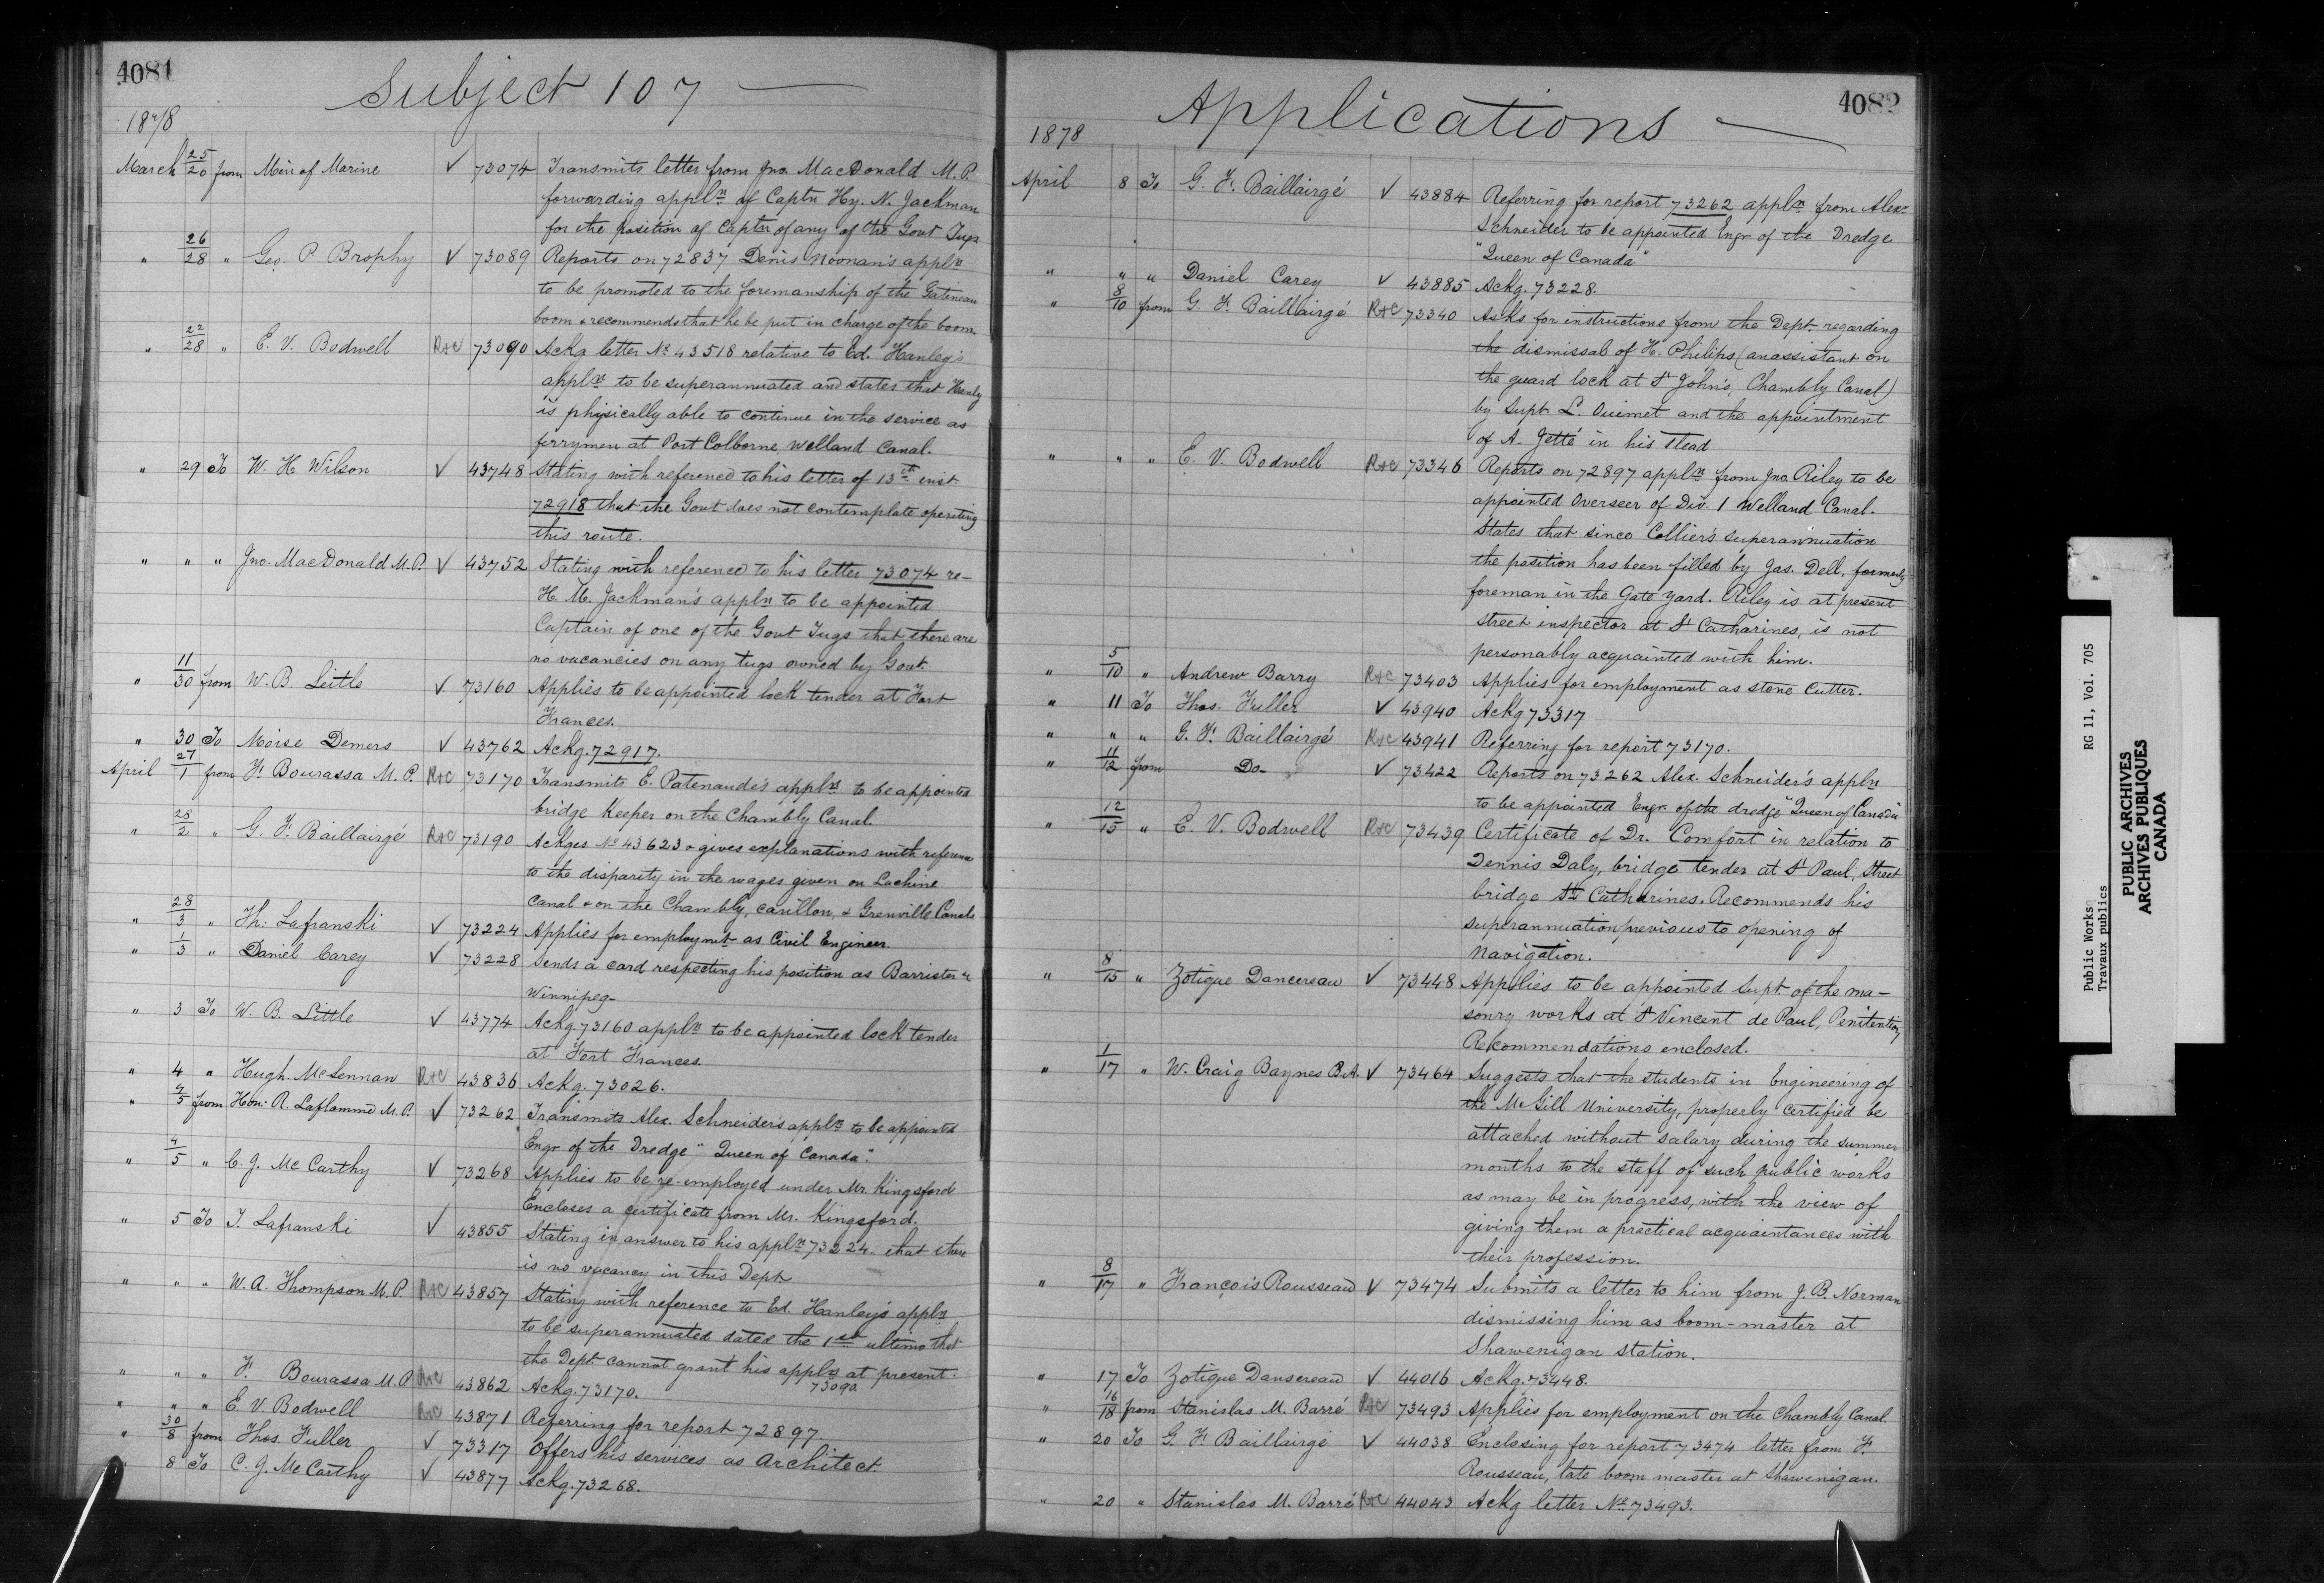 4081
Subject 107 —
1878
March 25/20 from Min of Marine √ 73074 Transmits letter from Jno. MacDonald M.P.
forwarding appln of Captn Hy. N. Jackman
for the position of Captn of any of the Govt Tugs
" 26/28 " Geo. P. Brophy √ 73089 Reports on 72837 Denis Noonan's appln
to be promoted to the foremanship of the Gatineau
boom & recommends that he be put in charge of the boom.
" 22/28 " E. V. Bodwell R&C 73090 Ackg letter No 43518 relative to Ed. Hanley's
appln to be superannuated and states that Hanly
is physically able to continue in the service as
ferryman at Port Colborne, Welland Canal.
" 29 To W. H Wilson √ 43748 Stating with reference to his letter of 13th inst.
72918 that the Govt does not contemplate operating
this route.
" " " Jno. MacDonald M.P. √ 43752 Stating with reference to his letter 73074 re-
H. M. Jackman's appln to be appointed
Captain of one of the Govt Tugs that there are
no vacancies on any tugs owned by Govt.
" 11/30 from W. B. Leitle √ 73160 Applies to be appointed lock tender at Fort
Frances.
" 30 To Moise Demers √ 43762 Ackg. 72917.
April 27/1 from F. Bourassa M.P. R&C 73170 Transmits E. Patenaude's appln to be appointed
bridge Keeper on the Chambly Canal.
" 28/2 " G. F. Baillairgé R&C 73190 Ackges No 43623 & gives explanations with reference
to the disparity in the wages given on Lachine
Canal & on the Chambly, Carillon, & Grenville Canals
" 28/3 " Th. Lafranski √ 73224 Applies for employmt as Civil Engineer.
" 1/3 " Daniel Carey √ 73228 Sends a card respecting his position as Barrister &c
Winnipeg-
" 3 To W. B. Little √ 43774 Ackg. 73160 appln to be appointed lock tender
at Fort Frances.
" 4 " Hugh. McLennan R&C 43836 Ackg. 73026.
" 4/5 from Hon. R. Laflamme M.P. √ 73262 Transmits Alex. Schneider's appln to be appointed
Engr of the Dredge "Queen of Canada".
" 4/5 " C. J. McCarthy √ 73268 Applies to be re-employed under Mr. Kingsford
Encloses a certificate from Mr. Kingsford.
" 5 To T. Lafranski √ 43855 Stating in answer to his appln 73224. that there
is no vacancy in this Dept
" " " W. A. Thompson M.P. R&C 43857 Stating with reference to Ed. Hanley's appln
to be superannuated dated the 1st ultimo that
the Dept. cannot grant his appln at present.
73090
" " " F. Bourassa M.P. R&C 43862 Ackg. 73170.
" " " E V. Bodwell R&C 43871 Referring for report 72897
" 30/8 from Thos. Fuller √ 73317 Offers his services as Architect.
" 8 To C. J. McCarthy √ 43877 Ackg. 73268.
4082
Applications —
1878
April 8 To G. F. Baillairgé √ 43884 Referring for report 73262 appln from Alexr
Schneider to be appointed Engr of the Dredge
"Queen of Canada"
" " " Daniel Carey √ 43885 Ackg. 73228.
" 8/10 from G. F. Baillairgé R&C 73340 Asks for instructions from the Dept. regarding
the dismissal of H. Philips (an assistant on
the guard lock at St John's, Chambly Canal)
by Supt. L. Ouimet and the appointment
of A. Jetté in his stead
" " " E. V. Bodwell R&C 73346 Reports on 72897 appln from Jno. Riley to be
appointed Overseer of Div. 1 Welland Canal.
States that since Collier's superannuation
the position has been filled by Jas. Dell, formerly
foreman in the Gate yard. Riley is at present
street inspector at St Catharines, is not
personably acquainted with him.
" 5/10 " Andrew Barry R&C 73403 Applies for employment as stone Cutter.
" 11 To Thos. Fuller √ 43940 Ackg 73317
" " " G. F. Baillairgé R&C 43941 Referring for report 73170.
" 11/12 from Do- √ 73422 Reports on 73262 Alex. Schneider's appln
to be appointed Engr. of the dredge "Queen of Canada"
" 12/15 " E. V. Bodwell R&C 73439 Certificate of Dr. Comfort in relation to
Dennis Daly, bridge tender at St Paul, Street
bridge St Catharines. Recommends his
superannuation previous to opening of
Navigation.
" 8/15 " Zotique Dancereau √ 73448 Applies to be appointed Supt. of the ma-
sonry works at St Vincent de Paul, Penitentiary
Recommendations enclosed.
" 1/17 " W. Craig Baynes B.A. √ 73464 Suggests that the students in Engineering of
the McGill University, properly certified be
attached without salary during the summer
months to the staff of such public works
as may be in progress, with the view of
giving them a practical acquaintances with
their profession.
" 8/17 " François Rousseau √ 73474 Submits a letter to him from J. B. Norman
dismissing him as boom-master at
Shawenigan Station.
" 17 To Zotique Dansereau √ 44016 Ackg. 73448.
" 16/18 from Stanislas M. Barré R&C 73493 Applies for employment on the Chambly Canal.
" 20 To G. F. Baillairgé √ 44038 Enclosing for report 73474 letter from F.
Rousseau, late boom master at Shawenigan.
" 20 " Stanislas M. Barré R&C 44043 Ackg letter No 73493.
Public Works RG 11, Vol. 705
Travaux publics
PUBLIC ARCHIVES
ARCHIVES PUBLIQUES
CANADA